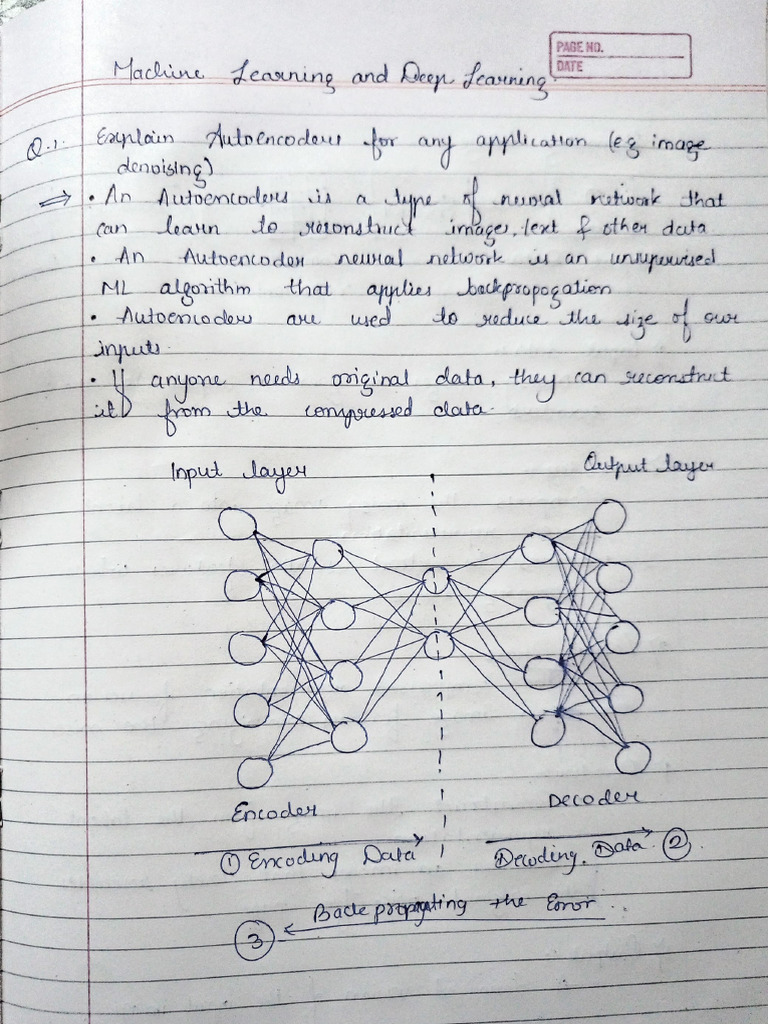 PAGE NO.
DATE
Machine Learning and Deep Learning.
Q.1. Explain Autoencoders for any application (eg image
denoising)
⇒ • An Autoencoders is a type of neural network that
can learn to reconstruct images, text & other data
• An Autoencoder neural network is an unsupervised
ML algorithm that applies backpropogation
• Autoencoders are used to reduce the size of our
inputs.
• If anyone needs original data, they can reconstruct
it from the compressed data.
Input layer
Output layer
Encoder
Decoder
① Encoding Data
Decoding Data. ②
Back propagating the Error
③